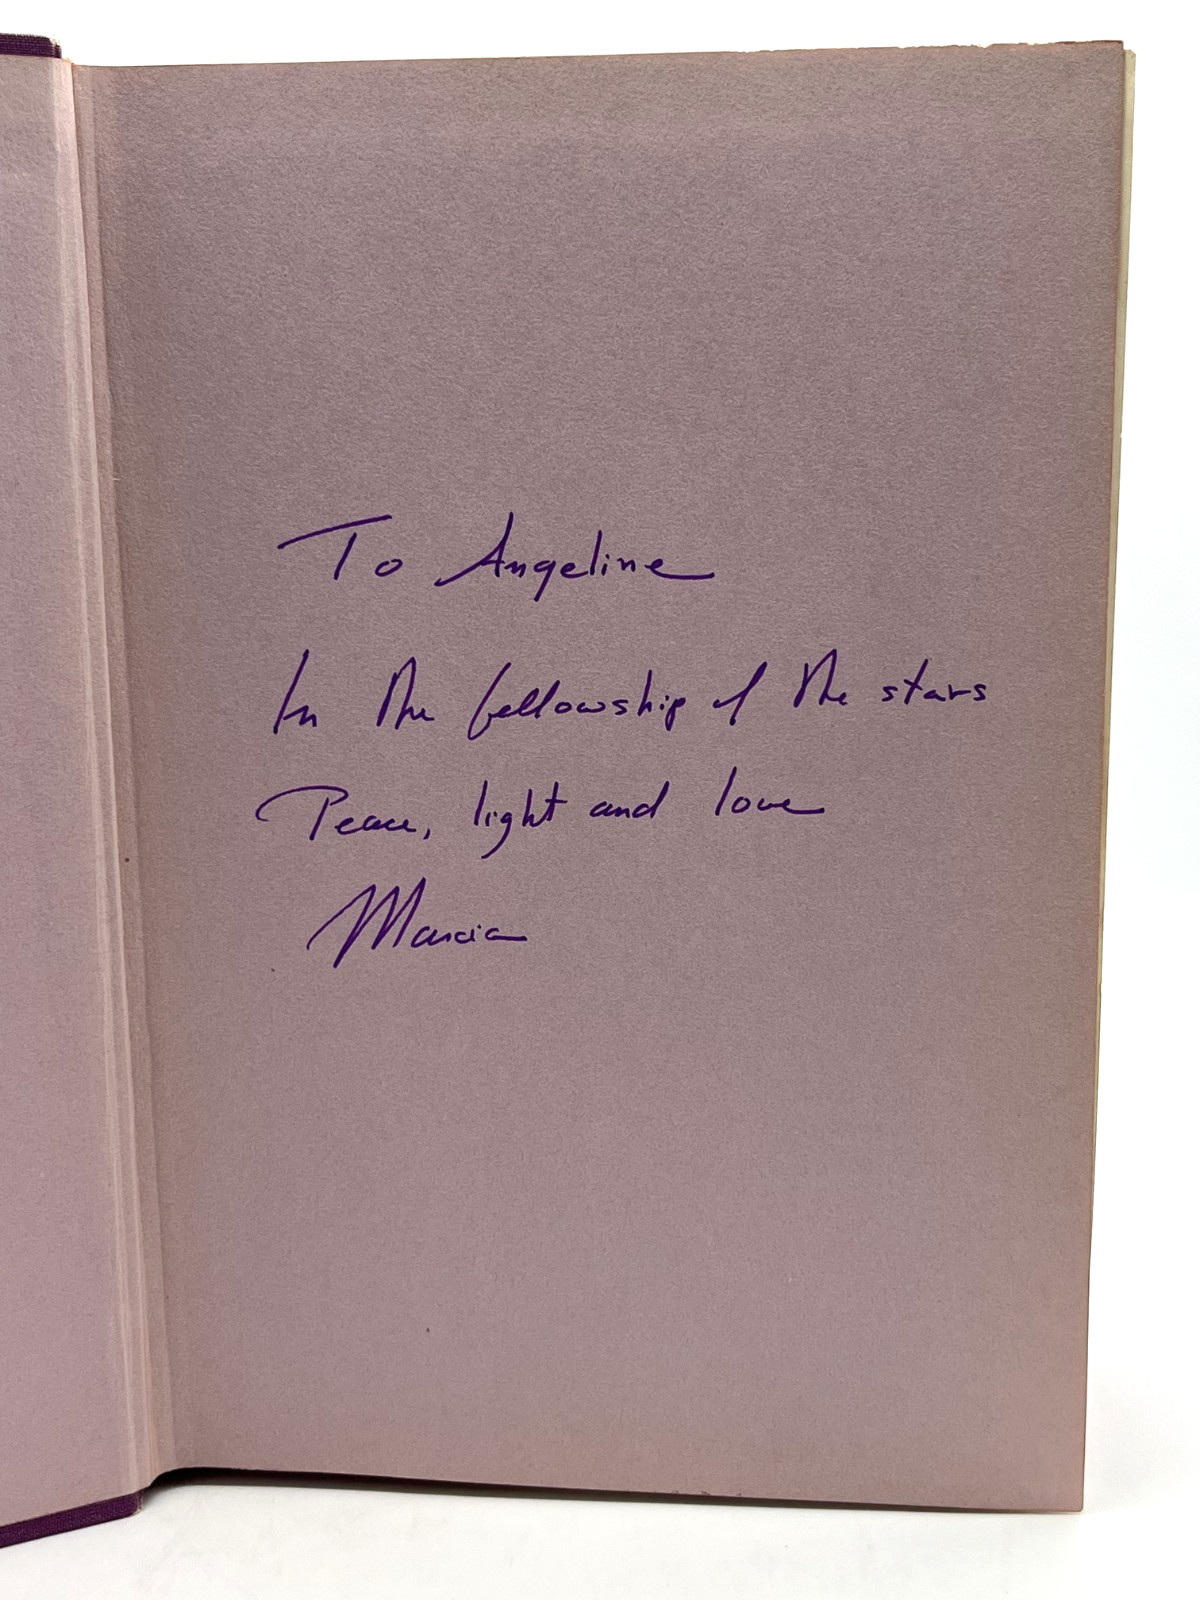 To Angeline
In the fellowship of the stars
Peace, light and love
Marcia